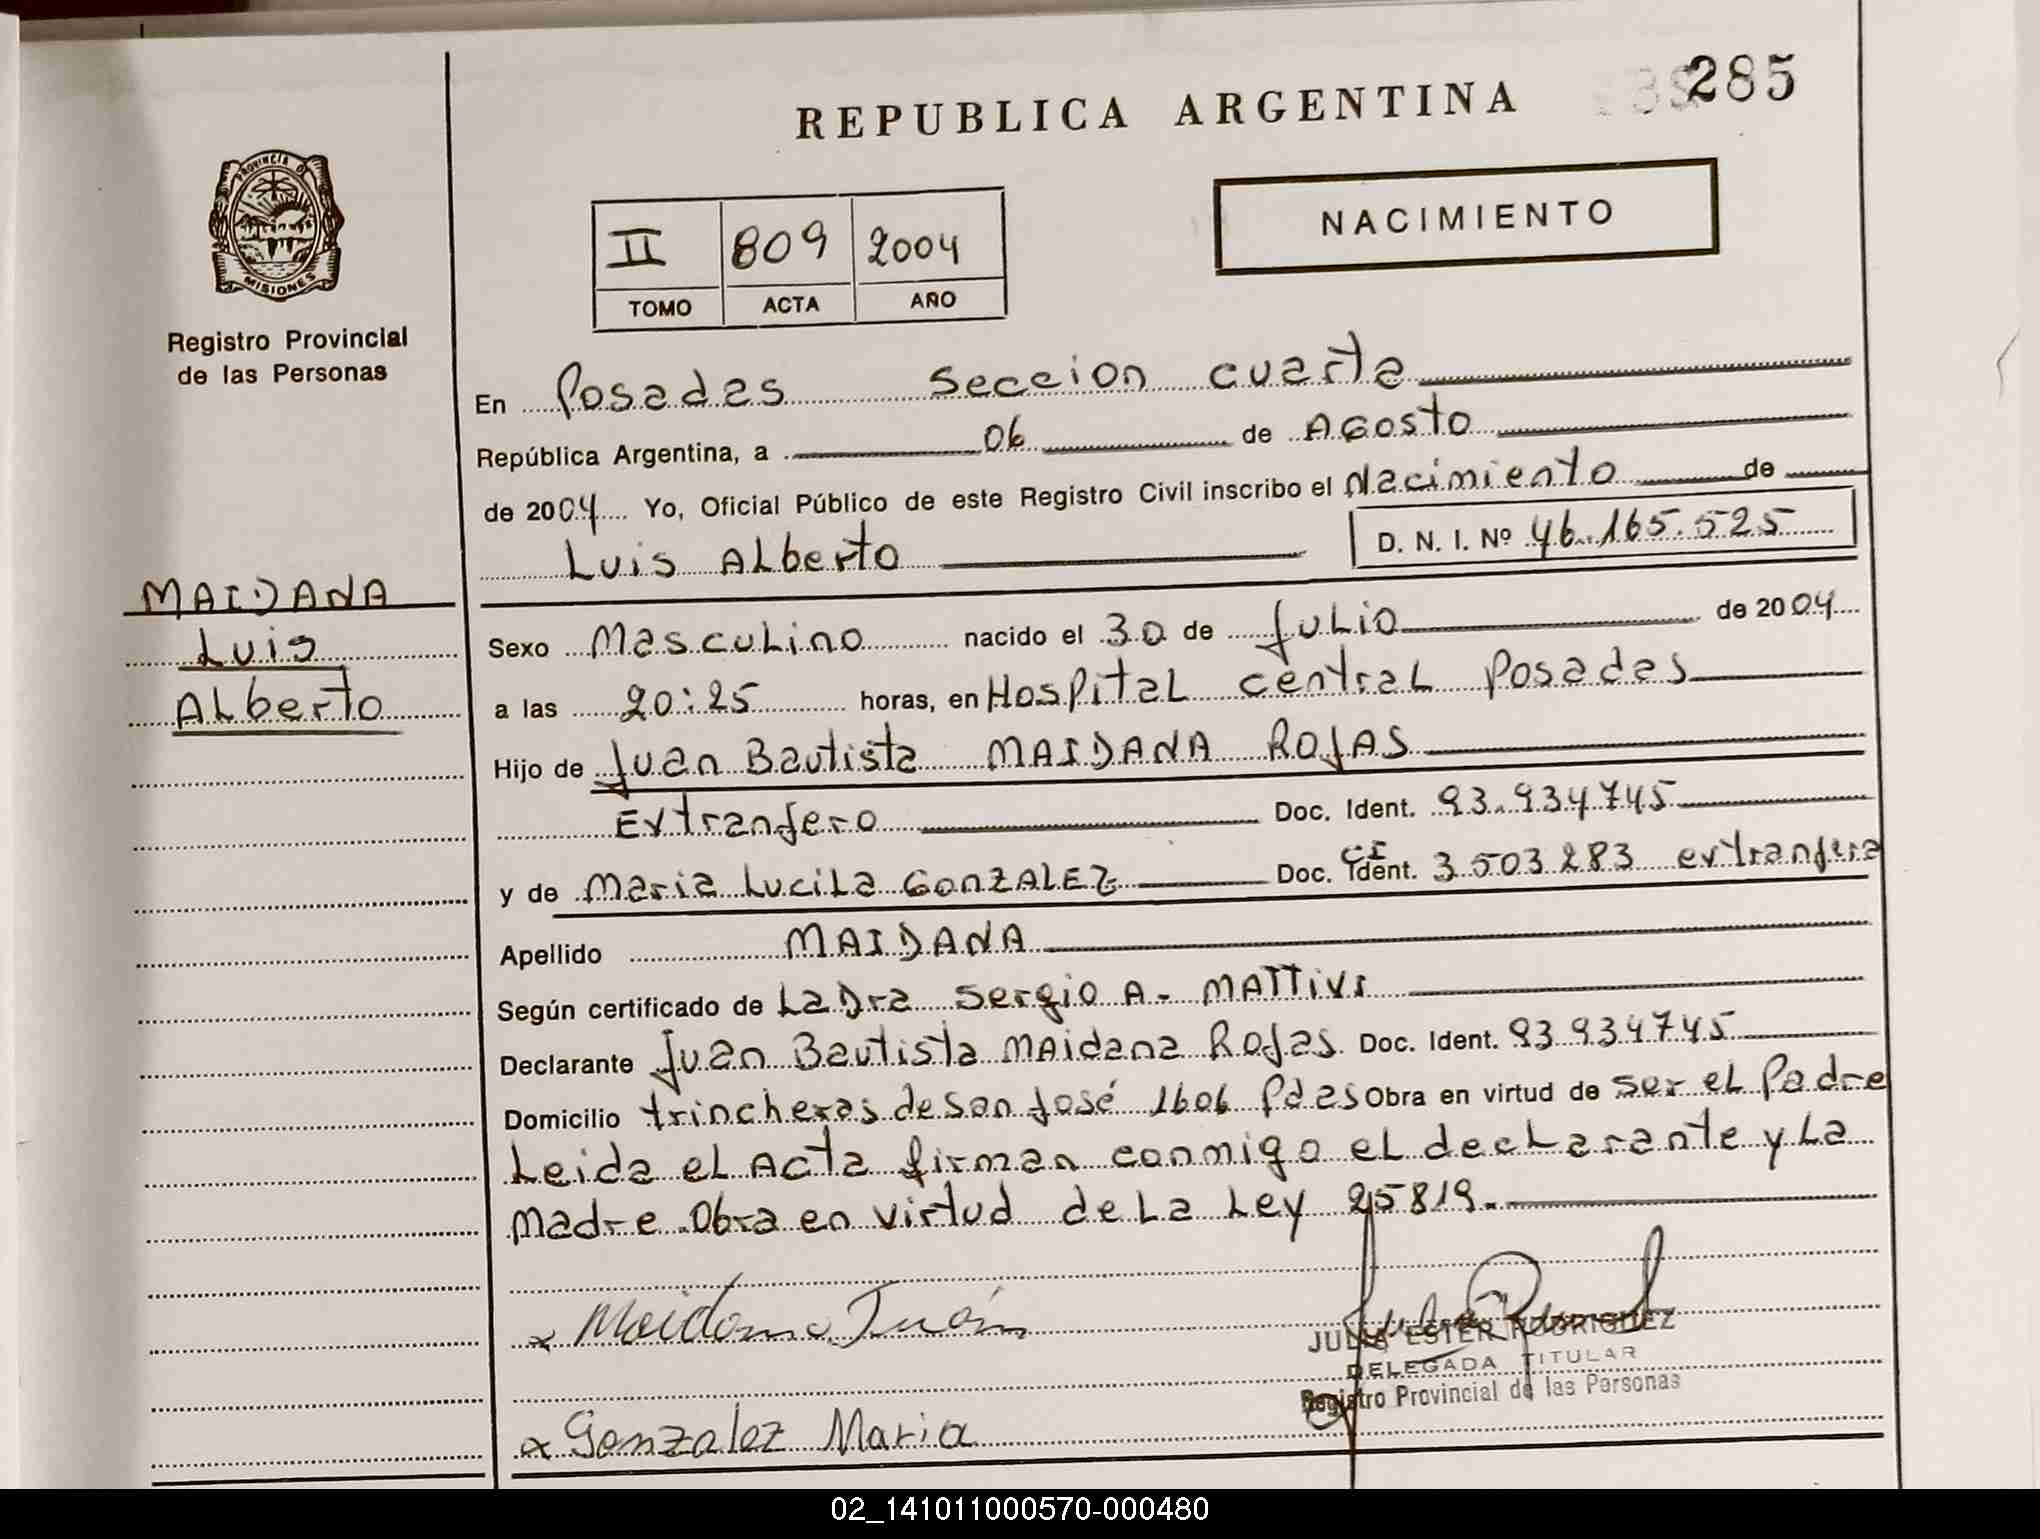 REPUBLICA ARGENTINA
285
PROVINCIA DE
MISIONES
Registro Provincial
de las Personas
NACIMIENTO
II 809 2004
TOMO ACTA AÑO
En Posadas seccion cuarta
República Argentina, a 06 de Agosto
de 2004 Yo, Oficial Público de este Registro Civil inscribo el Nacimiento de
Luis Alberto D. N. I. Nº 46.165.525
MAIDANA
Luis
Alberto
Sexo Masculino nacido el 30 de Julio de 2004
a las 20:25 horas, en Hospital central Posadas
Hijo de Juan Bautista MAIDANA ROJAS
Extranjero Doc. Ident. 93.934745
y de Maria Lucila GONZALEZ Doc. Ident. CI 3.503.283 extranjera
Apellido MAIDANA
Según certificado de La Dra Sergio A. MATTIVI
Declarante Juan Bautista Maidana Rojas Doc. Ident. 93934745
Domicilio trincheras de San José 1606 Pdas Obra en virtud de ser el Padre
Leida el Acta firman conmigo el declarante y La
Madre Obra en virtud de La Ley 25819.
x Maidana Juán
JULIA ESTER RODRIGUEZ
DELEGADA TITULAR
Registro Provincial de las Personas
x Gonzalez Maria
02_141011000570-000480